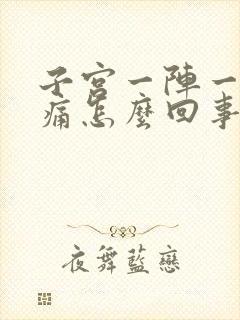 子宮一陣一
痛怎麼回事
夜舞藍戀